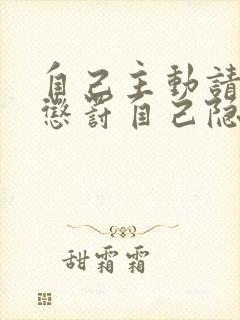 自己主動請
懲罰自己隐
甜霜霜